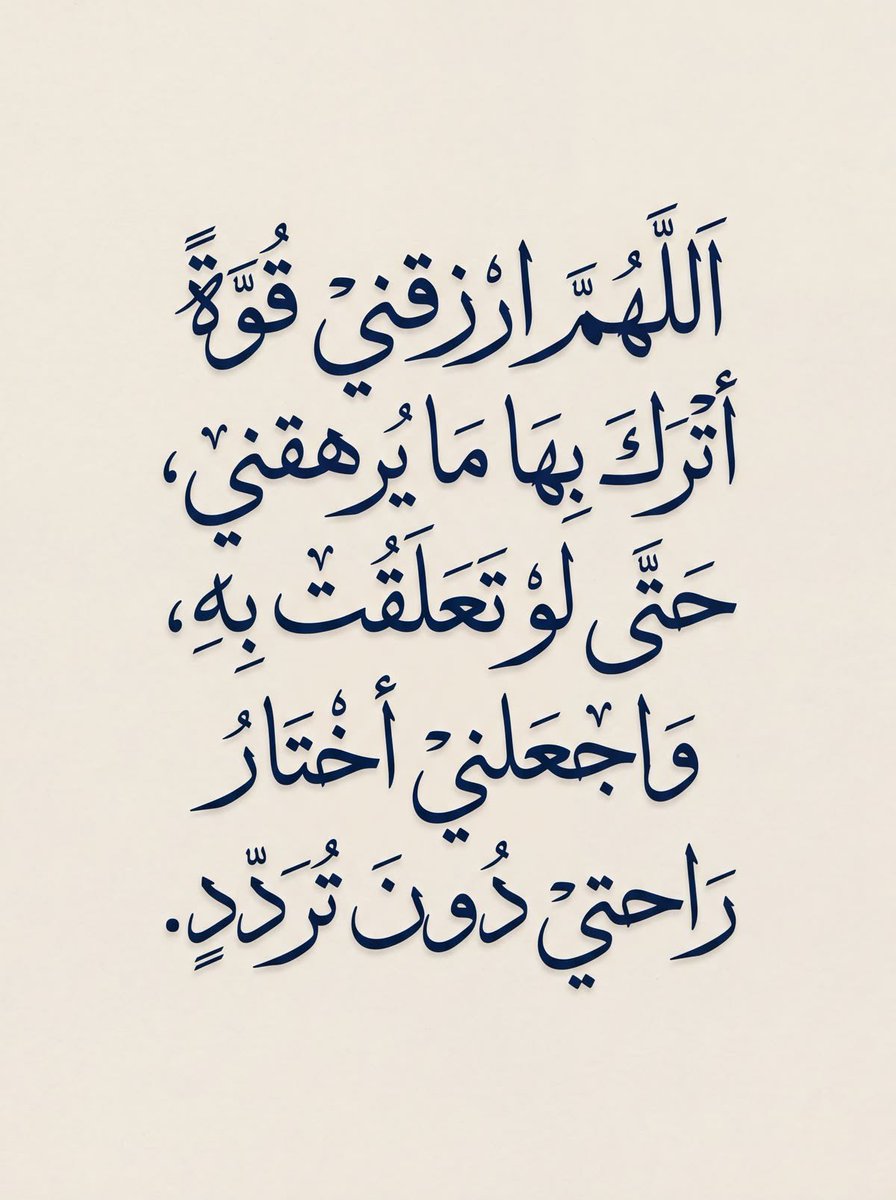 اَللَّهُمَّ ارْزقنيْ قُوَّةً
أتْرَكَ بِهَا مَا يُرهقنيْ،
حَتَّى لوْ تَعَلَقُتْ بِهِ،
وَاجْعَلنيْ أخْتَارُ
رَاحتيْ دُونَ تُرَدّدٍ.